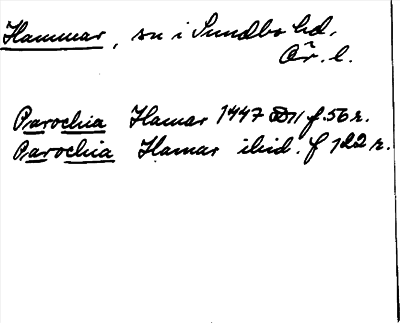 Hammar, sn i Sundbo hd.
Ör. l.
Parochia Hamar 1447 f. 56 r.
Parochia Hamar ibid. f 122 r.